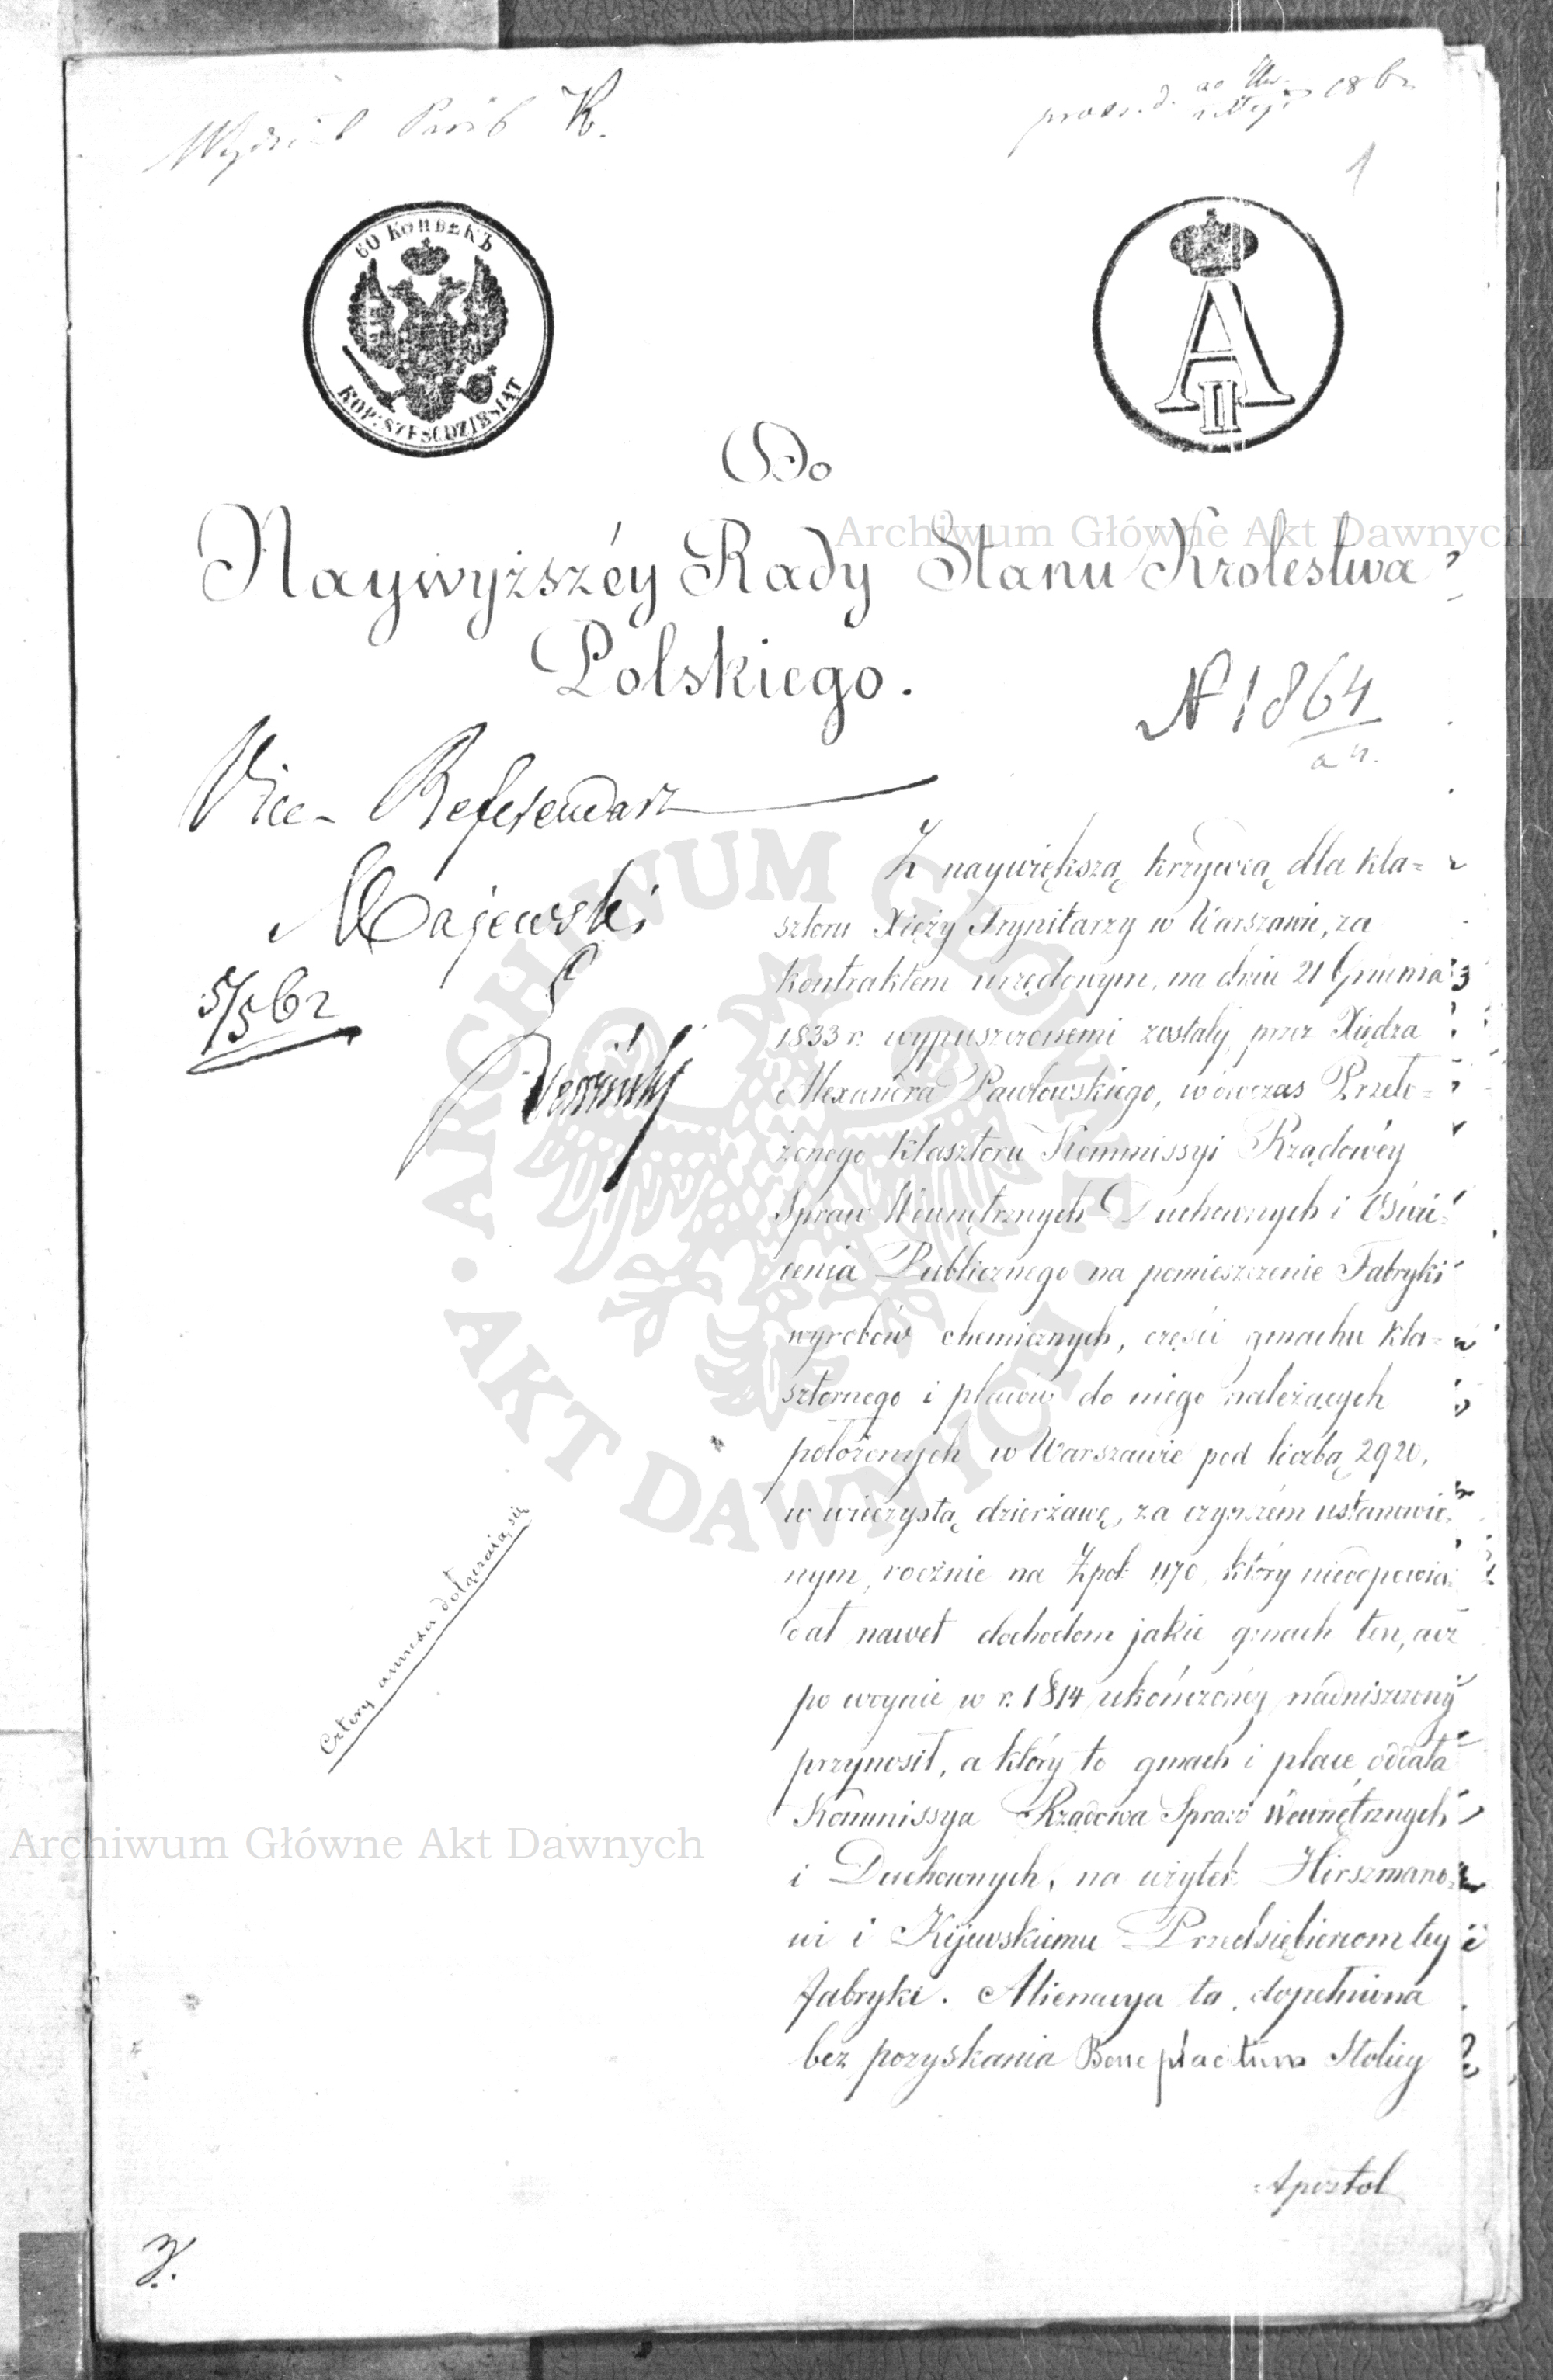 Wydział K.
1862
1
60 КОПѢЕКЪ
KOP: SZEŚĆDZIESIĄT
A II
Do
Naywyższéy Rady Stanu Królestwa
Polskiego.
N 1864
Vice-Referendarz
Majewski
5/5 62
Z naywiększą krzywdą dla kla=
sztoru Xięży Trynitarzy w Warszawie, za
kontraktem urzędowym, na dniu 21 Grudnia
1833 r. wypuszczonemi zostały przez Xiędza
Alexandra Pawłowskiego, wówczas Przeło=
żonego klasztoru Kommissyi Rządowéy
Spraw Wewnętrznych Duchownych i Oświe=
cenia Publicznego na pomieszczenie Fabryki
wyrobów chemicznych, części gmachu kla=
sztornego i placów do niego należących
położonych w Warszawie pod liczbą 2920,
w wieczystą dzierżawę, za czynszem ustanowio=
nym, rocznie na Zpol 1170, który nieodpowia=
dał nawet dochodom jakie gmach ten,
po woynie w r. 1814 ukończonéy nadniszczony
przynosił, a który to gmach i place oddała
Kommissya Rządowa Spraw Wewnętrznych
i Duchownych, na użytek Hirszmano=
wi i Kijewskiemu Przedsiębiercom tey
fabryki. Alienacya ta, dopełniona
bez pozyskania Beneplacitum Stolicy
Apostol
Cztery annexa dołączaią się
Archiwum Główne Akt Dawnych
Archiwum Główne Akt Dawnych
ARCHIWUM GŁÓWNE AKT DAWNYCH